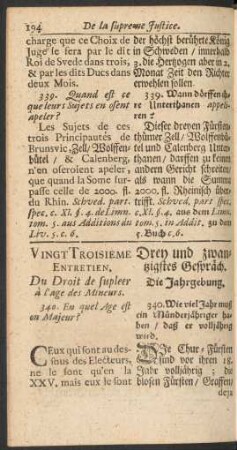 194 De la supreme Justice.
charge que ce Choix de
Juge se fera par le dit
Roi de Svede dans trois,
& par les dits Ducs dans
deux Mois.
339. Quand est ce
que leurs Sujets en osent
apeler?
Les Sujets de ces
trois Principautés de
Brunsvic-Zell/Wolffen/
büttel/ & Calenberg,
n'en oseroient apeler,
que quand la Some sur-
passe celle de 2000. fl.
du Rhin. Schved. part.
spec. c. XI. §. 4. de Limn.
tom. 5. aus Additions du
Liv. 5. c. 6.
VINGT TROISIEME
ENTRETIEN,
Du Droit de supleer
à l'age des Mineurs.
340. En quel Age est
on Majeur?
CEux qui sont au des-
sous des Electeurs,
ne le sont qu'en la
XXV, mais eux le sont
der höchst berührte König
in Schweden / innerhalb
3. die Hertzogen aber in 2.
Monat Zeit den Richter
erwehlen sollen.
339. Wann dörffen ihre
Unterthanen appelli-
ren?
Dieser dreyen Fürsten
thümer Zell / Wolffenbüt-
tel und Calenberg Unter-
thanen / dörffen zu keinen
andern Gericht schreiten /
als wann die Summe
2000. fl. Rheinisch über-
trifft. Schved. part. spec.
c. XI. §. 4. aus dem Limn.
tom. 5. in Addit. zu den
5. Buch c. 6.
Drey und zwan-
tzigstes Gespräch.
Die Jahrgebung.
340. Wie viel Jahr muß
ein Münderjähriger ha-
ben / daß er volljährig
werd.
Die Chur-Fürsten
sind vor ihren 18.
Jahr vollständig; die
blosen Fürsten / Graffen/